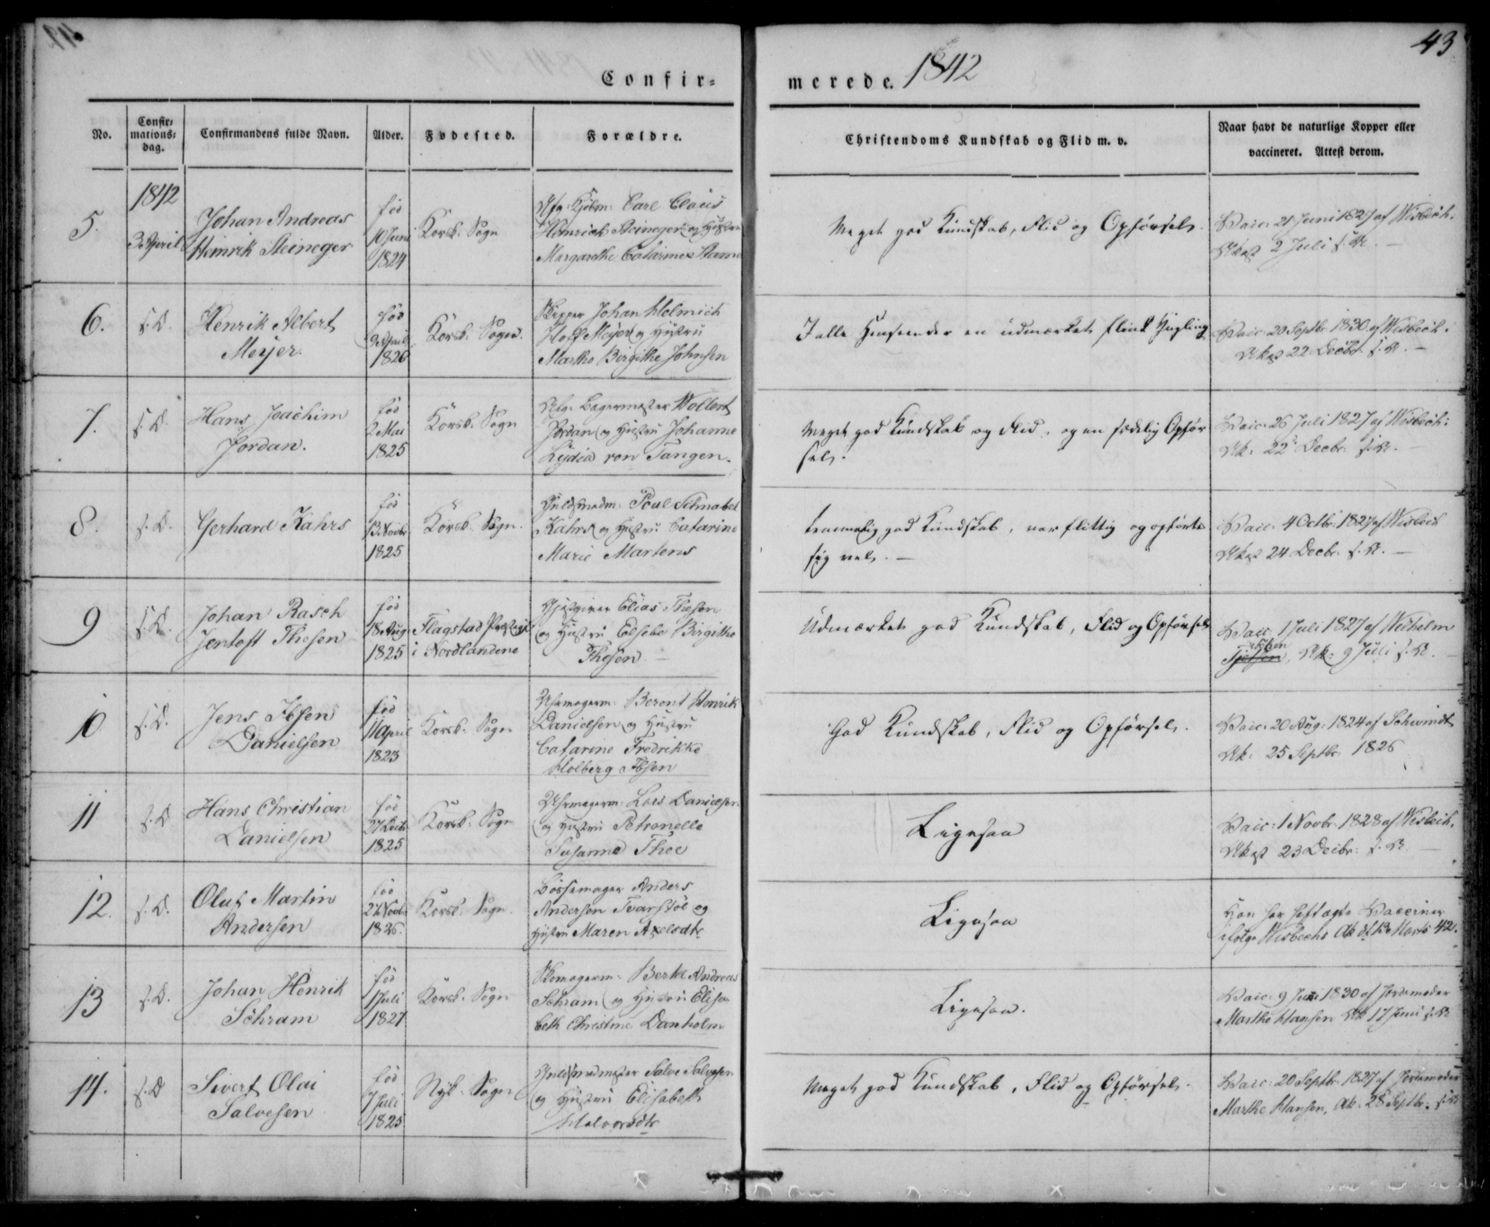 43
Confir= merede. 1842
No.
Confir=
mations=
dag.
Confirmandens fulde Navn.
Alder.
Fødested.
Forældre.
Christendoms Kundskab og Flid m. v.
Naar havt de naturlige Kopper eller
vaccineret. Attest derom.
1842
5.
3 April
Johan Andreas
Hinrik Meineger
fød
10 Juni
1824
Korsk. Sogn
Carl Claus
Hinrich Meineger og Hustru
Margarethe Catarine
Meget god Kundskab, Flid og Opførsel.
Vacc. 21 Juni 1827 af Wisbech.
Att. 2 Juli s. A.
6.
s. D.
Henrik Albert
Meyer.
fød
April
1826
Korsk. Sogn.
Skipper Johan
Meyer og Hustru
Marthe Birgithe Johnsen
I alle Henseender en udmærket flink Yngling
Vacc. 20 Septbr. 1830 af Wisbech.
Att. 22 Decbr. s. A.
7.
s. D.
Hans Joachim
Jordan.
fød
2 Mai
1825
Korsk. Sogn
Bagermester Wollert
Jordan og Hustru Johanne
Lydia von Tangen.
Meget god Kundskab og Flid, og en sædelig Opfør
sel.
Vacc. 26 Juli 1827 af Wisbech.
Att. 22 Decbr. s. A.
8.
s. D.
Gerhard Kahrs
fød
13 Novbr
1825
Korsk. Sogn.
Guldsmedm. Poul Schnabel
Kahrs og Hustru Catarine
Marie Martens
temmelig god Kundskab, var flittig og opførte
sig vel.
Vacc. 4 Octbr. 1827 af Wisbech
Att. 24 Decbr. s. A.
9
s. D.
Johan Rasch
Jentoft Thesen
fød
18 Aug
1825
Flagstad Præstegj.
i Nordlandene
Elias Thesen
og Hustru Birgithe
Thesen
Udmærket god Kundskab, Flid og Opførsel
Vacc. 1 Juli 1827 af
Att. 9 Juli s. A.
10
s. D.
Jens Ibsen
Danielsen
fød
11 April
1823
Korsk. Sogn
Uhrmagerm. Berent Henrik
Danielsen og Hustru
Catarine Fredrikke
Holberg Ibsen
God Kundskab, Flid og Opførsel.
Vacc. 20 Aug. 1824 af Schwindt
Att. 25 Septbr 1826
11
s. D.
Hans Christian
Danielsen
fød
27 Decbr
1825
Korsk. Sogn
Uhrmagerm. Lars Danielsen
og Hustru Petronelle
Susanne Thoe
Ligesaa
Vacc. 1 Novbr. 1828 af Wisbech.
Att. 23 Decbr. s. A.
12.
s. D.
Oluf Martin
Andersen
fød
Novbr
Korsk. Sogn.
Børsemager Anders
Andersen og
Hustru Maren Axelsdtr.
Ligesaa
Han har havt ægte Vacciner
ifølge Wisbechs Att. Marts 42.
13
s. D.
Johan Henrik
Schram
fød
1 Juli
1827
Korsk. Sogn
Skomagerm. Berte Andreas
Schram og Hustru Elisa
beth Christine Danholm
Ligesaa.
Vacc. 9 Juni 1830 af Jordemoder
Marthe Hansen Att. 17 Juni s. A.
14.
s. D
Sivert Olai
Salvesen
fød
7 Juli
1825
Nyk. Sogn
Guldsmedmester Salve Salvesen
og Hustru Elisabeth
Halvorsdtr
Meget god Kundskab, Flid og Opførsel.
Vacc. 20 Septbr. 1827 af Jordemoder
Marthe Hansen, Att. 28 Septbr. s. A.